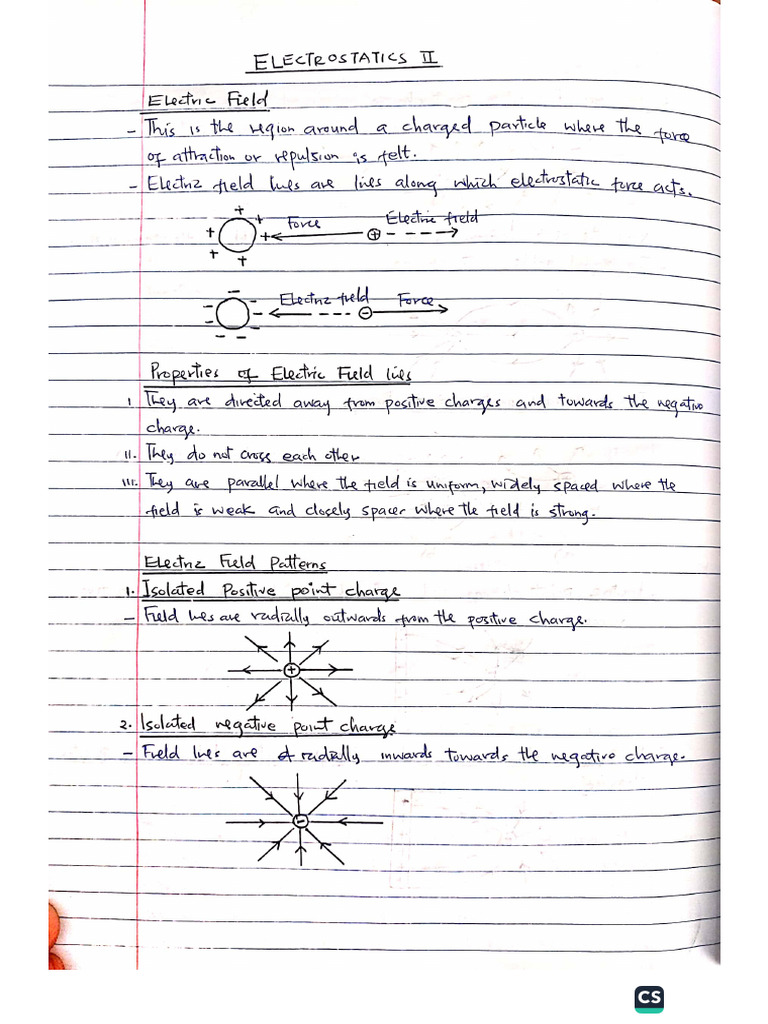 ELECTROSTATICS II
Electric Field
- This is the region around a charged particle where the force
of attraction or repulsion is felt.
- Electric field lines are lines along which electrostatic force acts.
+ + + + + +
Force + Electric field
- - - - - - -
Electric field - Force
Properties of Electric Field lines
I. They are directed away from positive charges and towards the negative
charge.
II. They do not cross each other
III. They are parallel where the field is uniform, widely spaced where the
field is weak and closely spacer where the field is strong.
Electric Field Patterns
1. Isolated Positive point charge
- Field lines are radially outwards from the positive charge.
+
2. Isolated negative point charge
- Field lines are radially inwards towards the negative charge.
-
CS